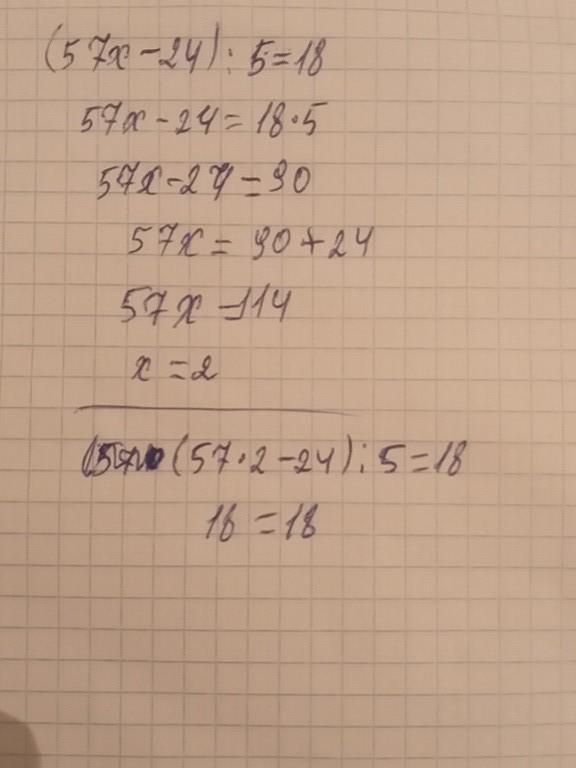 (57x-24):5=18
57x-24=18·5
57x-24=90
57x=90+24
57x=114
x=2
(57·2-24):5=18
18=18